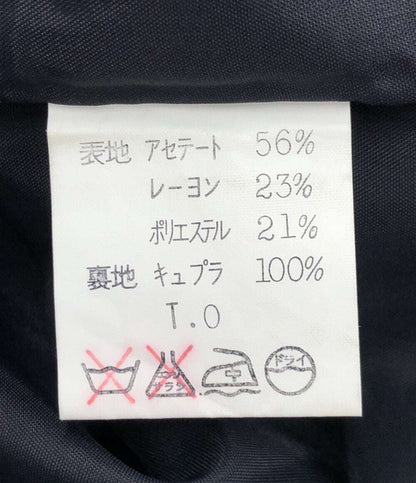 表地 アセテート 56%
レーヨン 23%
ポリエステル 21%
裏地 キュプラ 100%
T.O
エンソ サラシ 中 ドライ